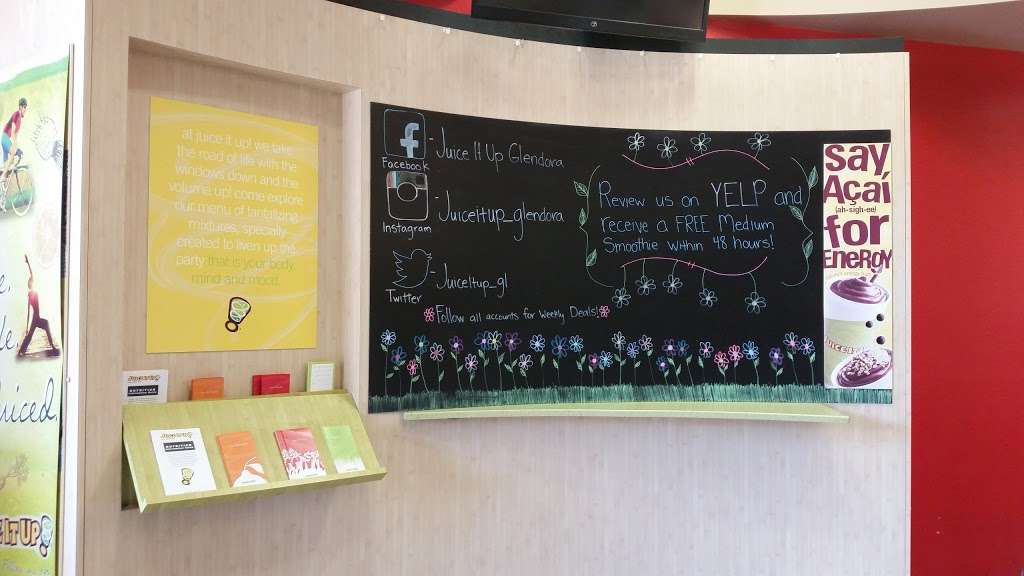 at juice it up! we take
the road of life with the
windows down and the
volume up! come explore
our menu of tantalizing
mixtures, specially
created to liven up the
party that is your body,
mind and mood.
Facebook
- Juice It Up Glendora
Instagram
- Juiceitup_glendora
Twitter
- Juiceitup_gl
Follow all accounts for Weekly Deals!
Review us on YELP and
receive a FREE Medium
Smoothie within 48 hours!
say,
Açaí
(ah-sigh-ee)
for
ENERGY
NUTRITION
juiced
E IT UP!